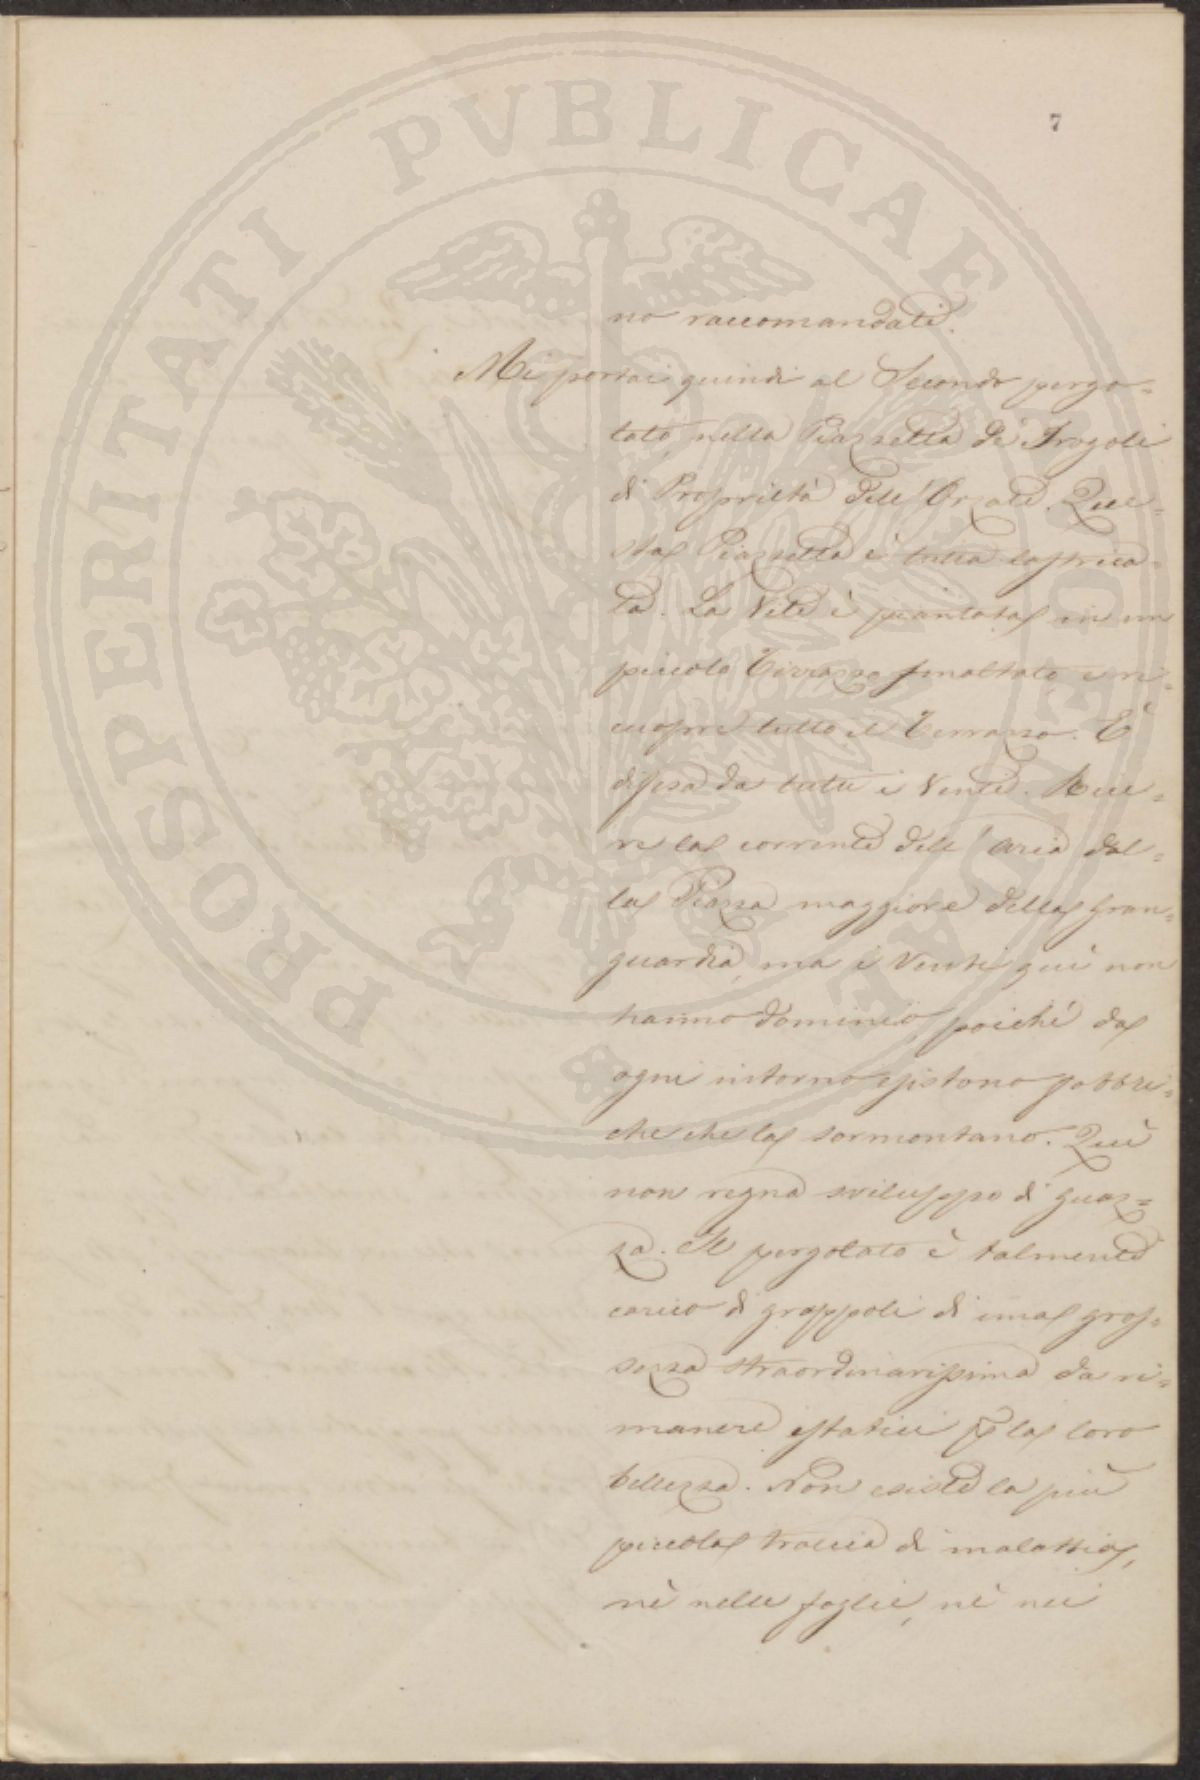 7
no raccomandati.
Mi portai quindi al Secondo pergo=
lato, nella Piazzetta de' Frogoli
di Proprietà dell'Orzali. Que=
sta Piazzetta è tutta lastrica=
ta. La Vite è piantata in un
piccolo Terrazzo smaltato e ri=
cuopre tutto il Terrazzo. È
difesa da tutti i Venti. Rice=
ve la corrente dell'aria dal=
la Piazza maggiore della Gran=
guardia, ma i Venti quì non
hanno dominio, poiché da
ogni intorno esistono fabbri=
che che la sormontano. Quì
non regna sviluppo di guaz=
za. Il pergolato è talmente
carico di grappoli di una gros=
sezza straordinarissima da ri=
manere estatici p la loro
bellezza. Non esiste la più
piccola traccia di malattia,
nè nelle foglie, nè nei
PROSPERITATI PVBLICAE